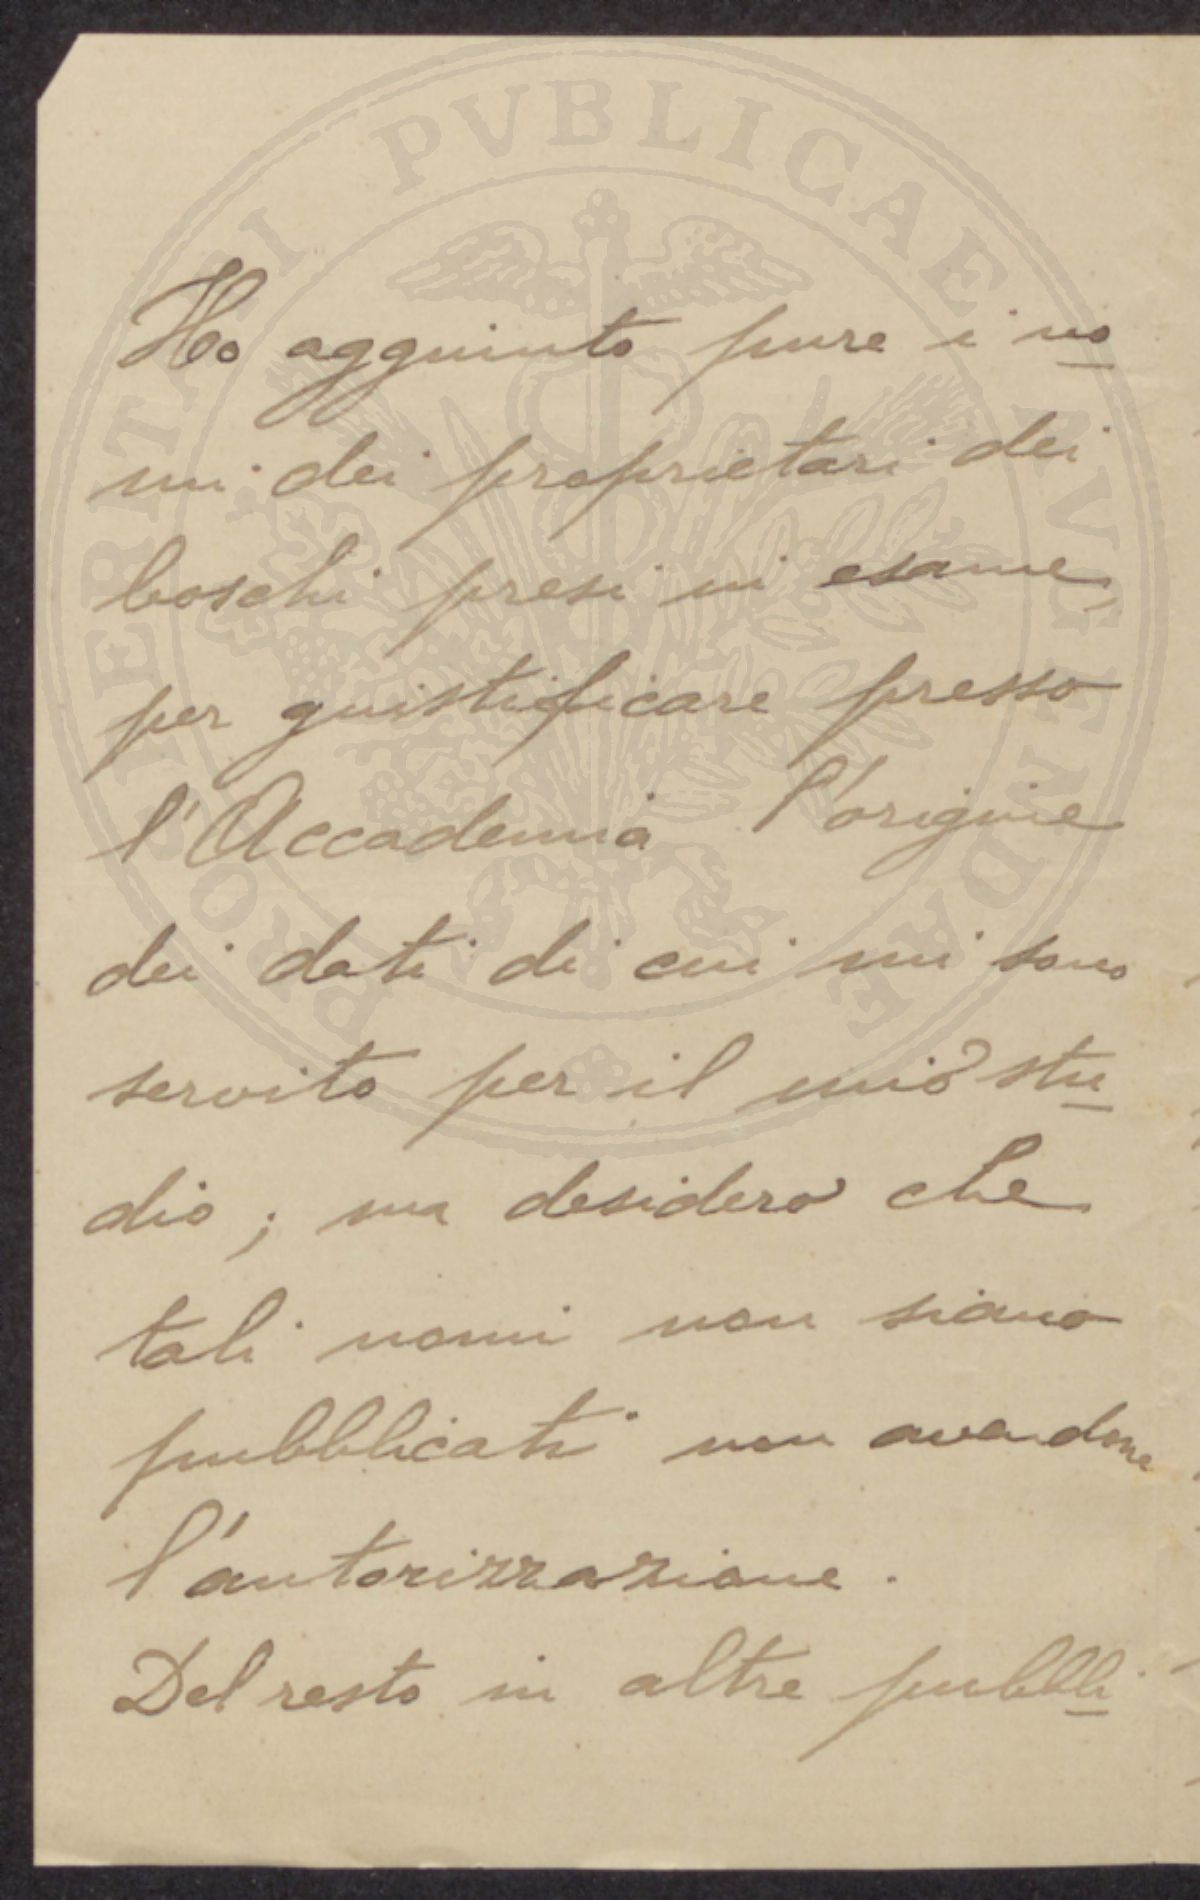 Ho aggiunto pure i no
mi dei proprietari dei
boschi presi in esame,
per giustificare presso
l'Accademia l'origine
dei dati di cui mi sono
servito per il mio stu
dio; ma desidero che
tali nomi non siano
pubblicati non avendone
l'autorizzazione.
Del resto in altre pubbli
PROSPERITATI PVBLICAE AVGENDAE